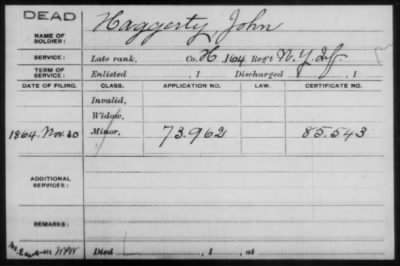 DEAD
NAME OF SOLDIER: Haggerty, John
SERVICE: Late rank, Co. H 164 Reg't N.Y. Inf
TERM OF SERVICE: Enlisted , 1 Discharged , 1
DATE OF FILING. CLASS. APPLICATION NO. LAW. CERTIFICATE NO.
Invalid,
Widow,
1864. Nov. 30 Minor, 73.962 85.543
ADDITIONAL SERVICES:
REMARKS:
Died , 1 , at